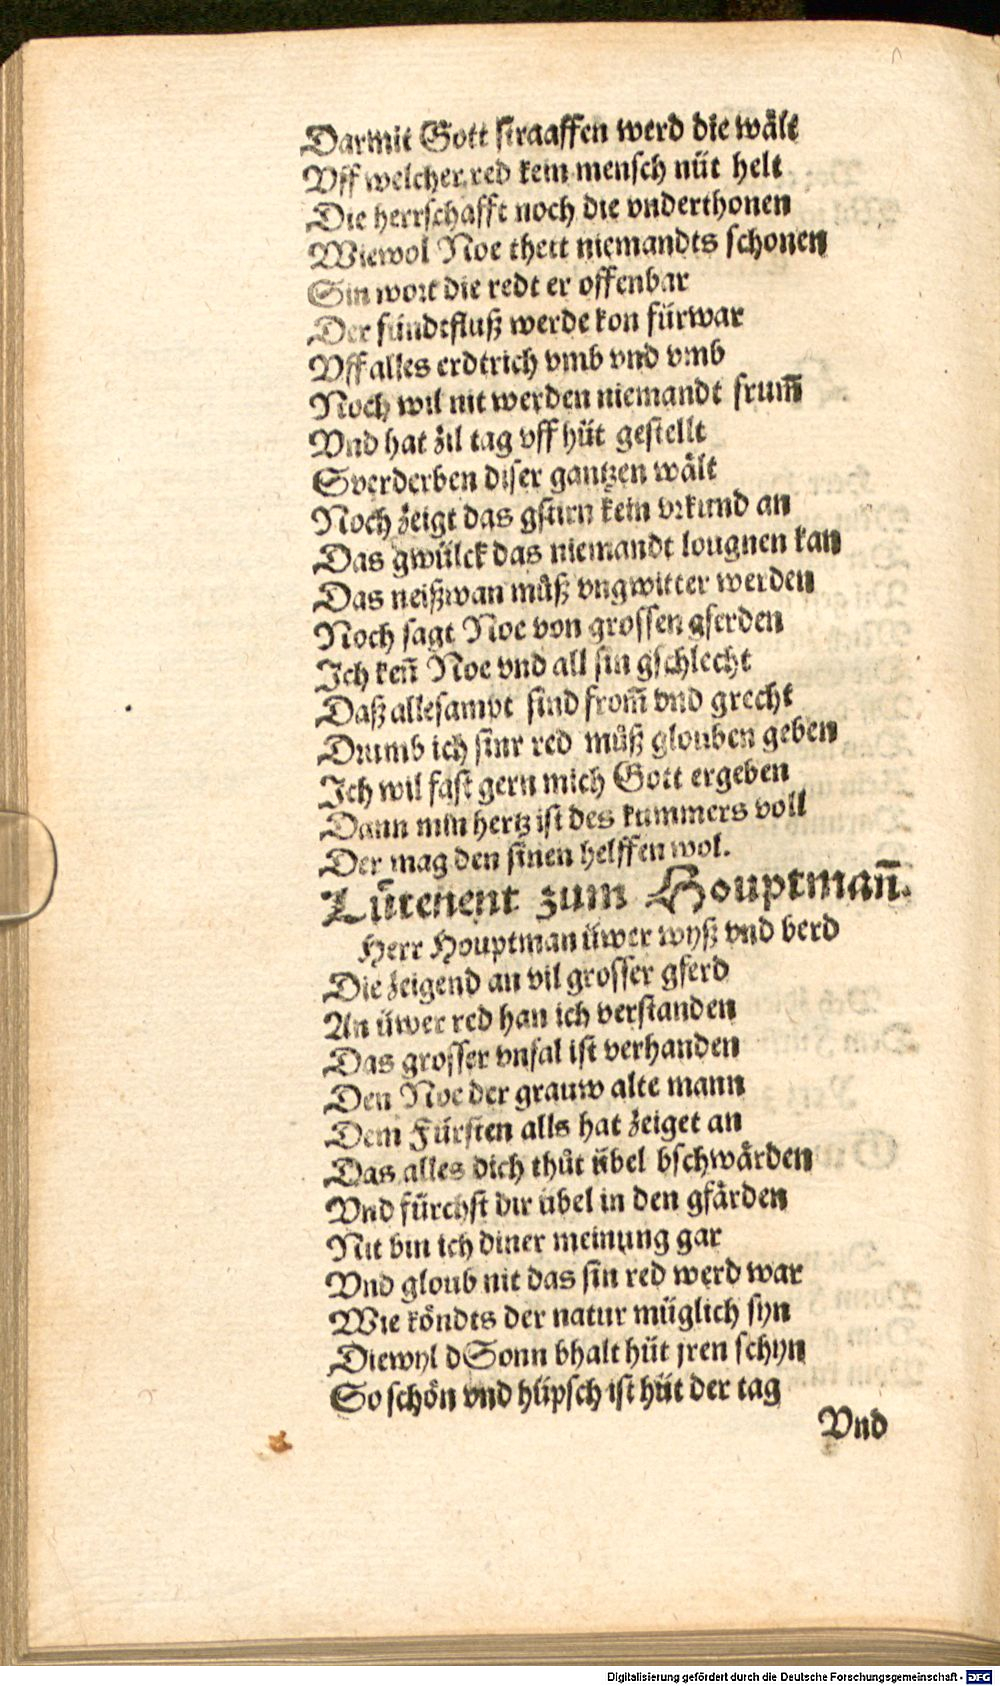 Darmit Gott straaffen werd die wält
Vff welcher red kein mensch nüt helt
Die herrschafft noch die vnderthonen
Wiewol Noe thett niemandts schonen
Sin wort die redt er offenbar
Der sündtfluß werde kon fürwar
Vff alles erdtrich vmb vnd vmb
Noch wil nit werden niemandt frum̃
Vnd hat zil tag vff hüt gestellt
Sverderben diser gantzen wält
Noch zeigt das gstirn kein vrkund an
Das gwülck das niemandt lougnen kan
Das neißwan můß vngwitter werden
Noch sagt Noe von grossen gferden
Ich ken̄ Noe vnd all sin gschlecht
Daß allesampt sind from̃ vnd grecht
Drumb ich sinr red můß glouben geben
Ich wil fast gern mich Gott ergeben
Dann min hertz ist des kummers voll
Der mag den sinen helffen wol.
Lütenent zum Houptman̄.
Herr Houptman üwer wyß vnd berd
Die zeigend an vil grosser gferd
An üwer red han ich verstanden
Das grosser vnfal ist verhanden
Den Noe der grauw alte mann
Dem Fürsten alls hat zeiget an
Das alles dich thůt übel bschwärden
Vnd fürchst dir übel in den gfärden
Nit bin ich diner meinung gar
Vnd gloub nit das sin red werd war
Wie köndts der natur müglich syn
Diewyl dSonn bhalt hüt jren schyn
So schön vnd hüpsch ist hüt der tag
Vnd
Digitalisierung gefördert durch die Deutsche Forschungsgemeinschaft - DFG